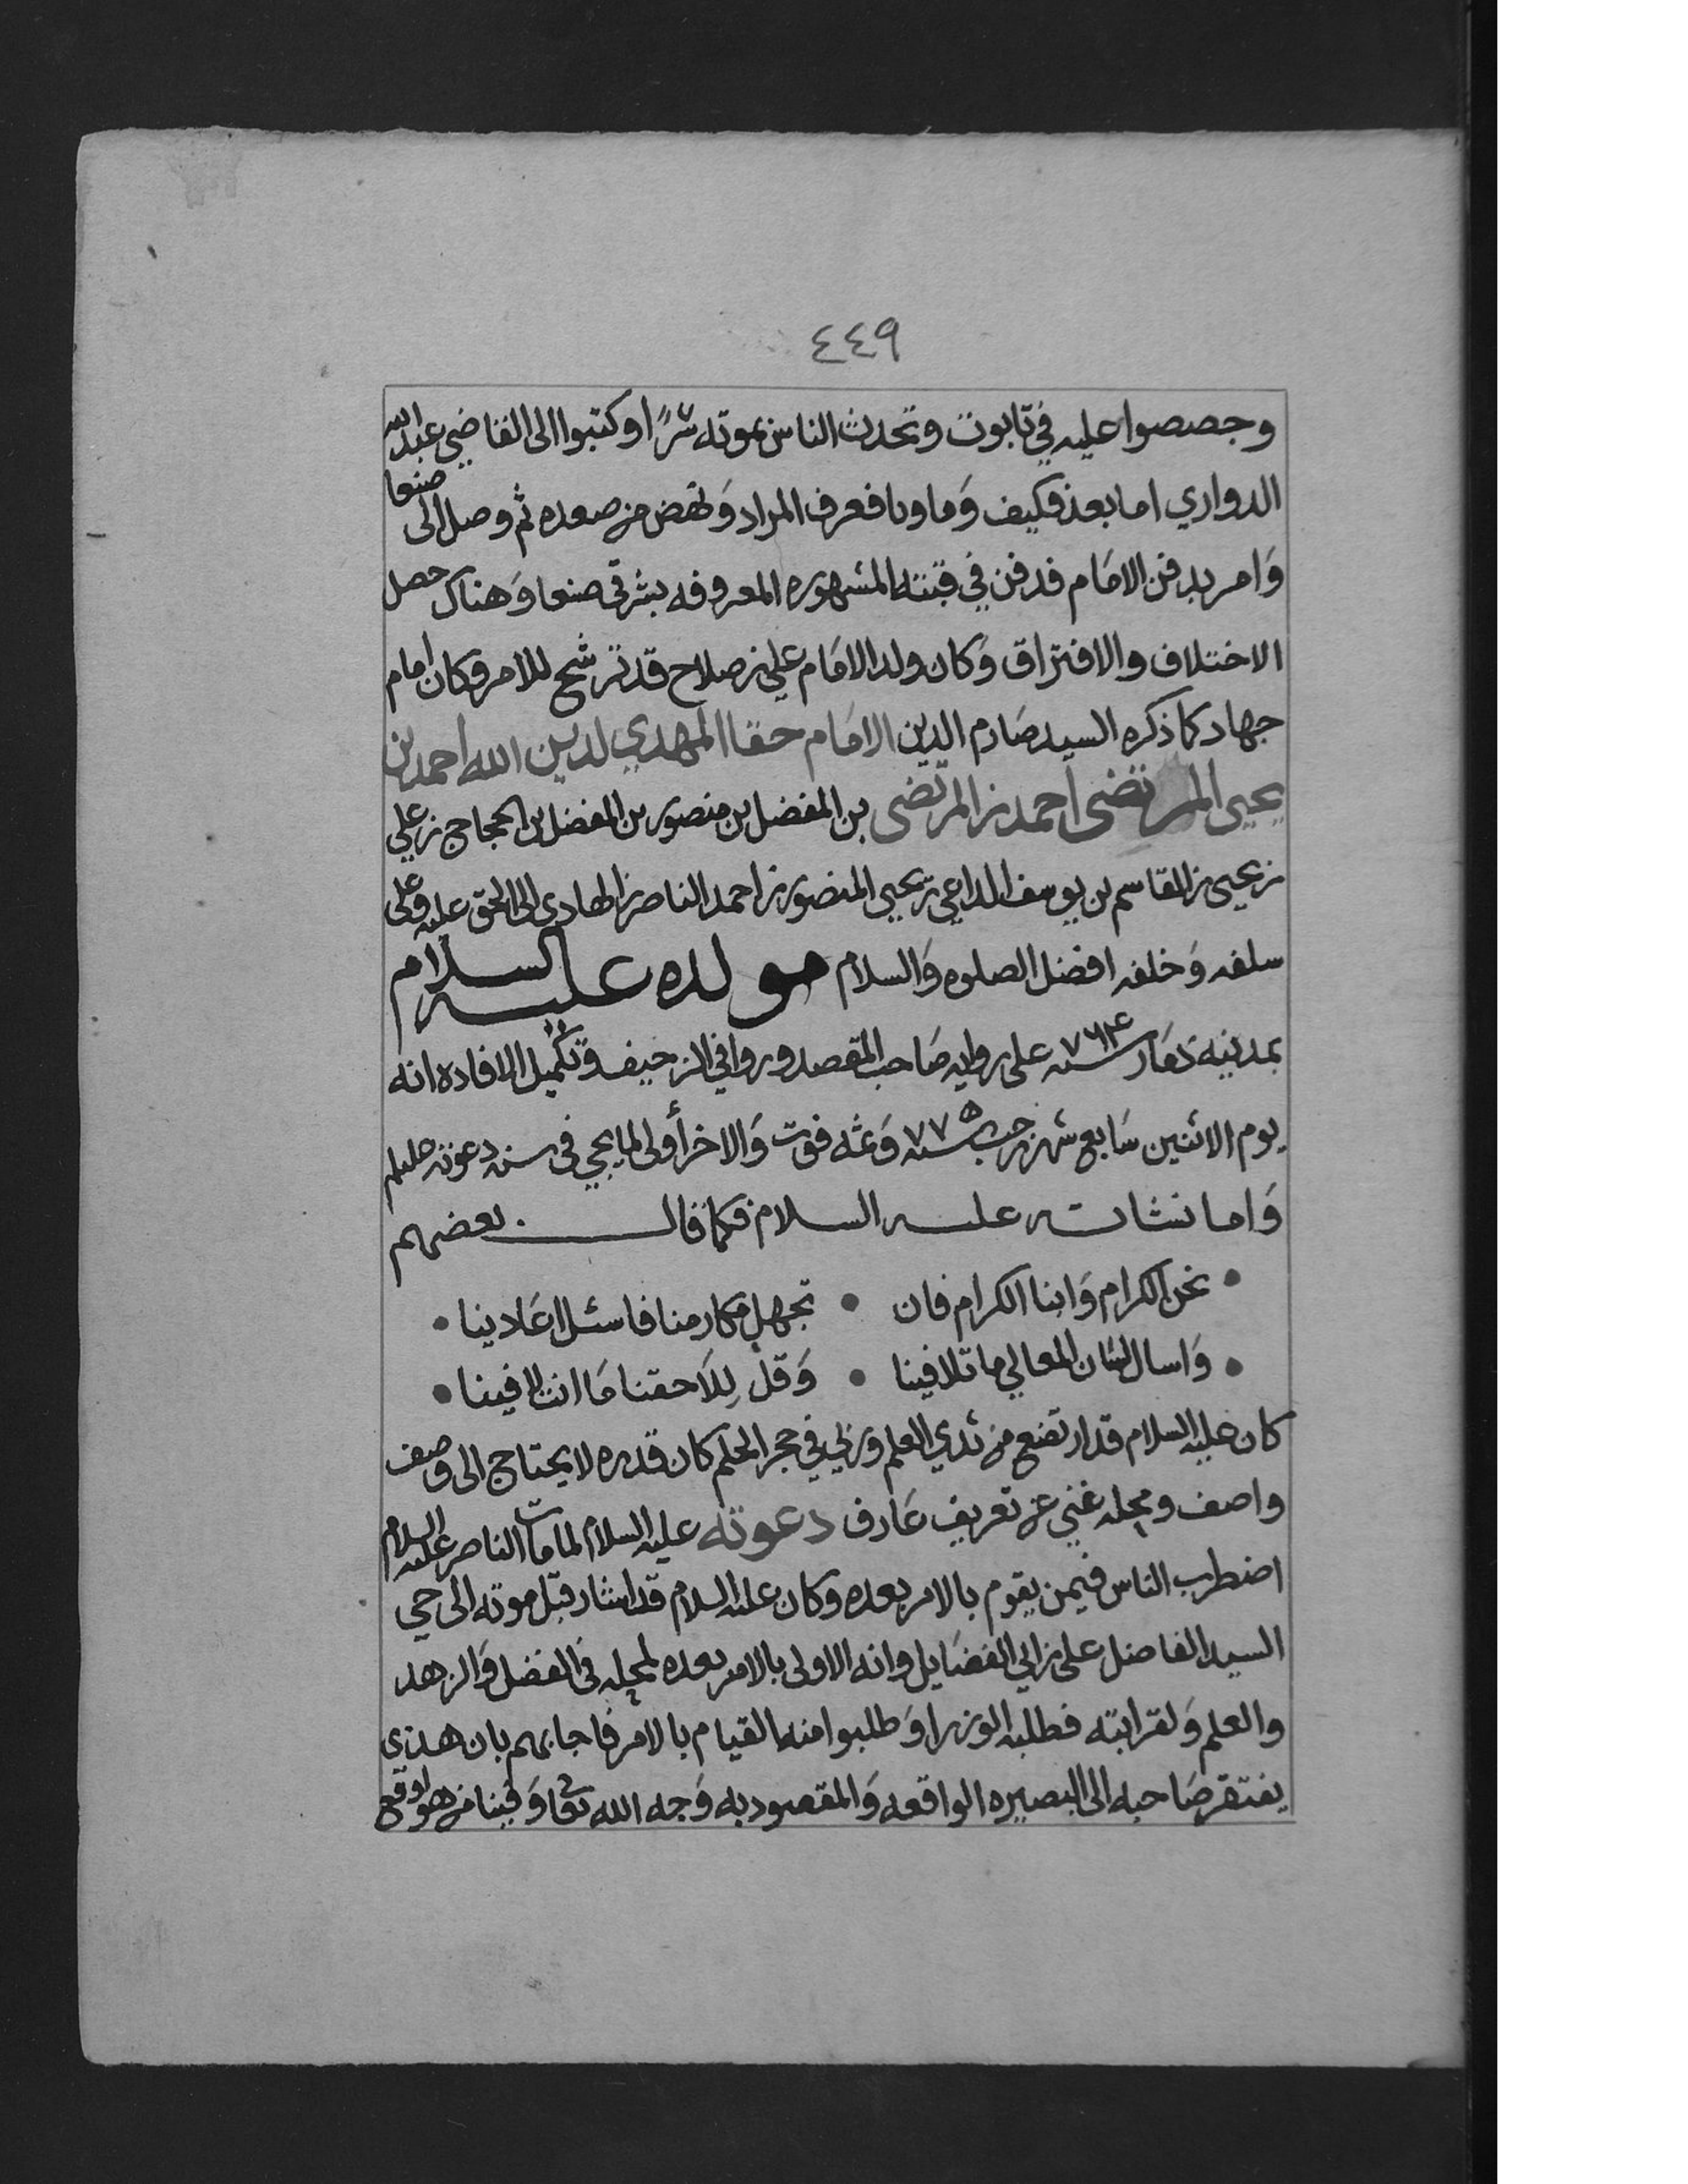 ٤٤٩
وجصصوا عليه في تابوت وتحدث الناس بموته سرًا وكتبوا الى القاضي عبدالله
الدواري اما بعد فكيف وَما وبا فعرف المراد وَنهض من صعده ثم وصل الى صنعا
وَامر بدفن الامَام فدفن في قبته المشهوره المعروفه بشرقي صنعا وَهناك حصل
الاختلاف والافتراق وَكان ولد الامَام علي بن صلاح قد ترشح للامر وكان امام
جهاد كما ذكره السيد صَارم الدين الامَام حقا المهدي لدين الله احمد بن
يحيى المرتضى احمد بن المرتضى بن المفضل بن منصور بن المفضل بن الحجاج بن علي
بن يحيى بن القاسم بن يوسف الداعي بن يحيى المنصور بن احمد الناصر بن الهادي الى الحق عليه وعلى
سلفه وَخلفه افضل الصلوه وَالسلام مولده عليه السلام
بمدينه ذمَار سنه ٧٦٤ على روايه صَاحب المقصد وروا في الزحيف وتكميل الافاده انه
يوم الاثنين سَابع شهر رجب سنه ٧٧٥ وَثمه فوت وَالاخر أولى لما يجي في سنه دعوته
وَاما نشاته عليه السلام فكما قال بعضهم
نحن الكرام وَابنا الكرام فان • تجهل مكارمنا فاسئل اعَادينا
وَاسال لسَان المعالي ما تلافينا • وَقل لِلَاحقنا مَا انت لافينا
كان عليه السلام قد ارتضع من ثدي العلم وربي في حجر الحلم كان قدره لا يحتاج الى وصف
واصف ومحله غني عن تعريف عَارف دعوته عليه السلام لما مات الناصر عليه السلام
اضطرب الناس فيمن يقوم بالامر بعده وكان عليه السلام قد اشار قبل موته الى حي
السيد الفاضل علي بن ابي الفضَايل وانه الاولى بالامر بعده لمحله في الفضل وَالزهد
والعلم وَلقرابته فطلبه الوزرا وَطلبوا منه القيام بالامر فاجابهم بان هذى
يفتقر صَاحبه الى البصيره الواقعه وَالمقصود به وَجه الله تعا وَفينا من هو اوقع